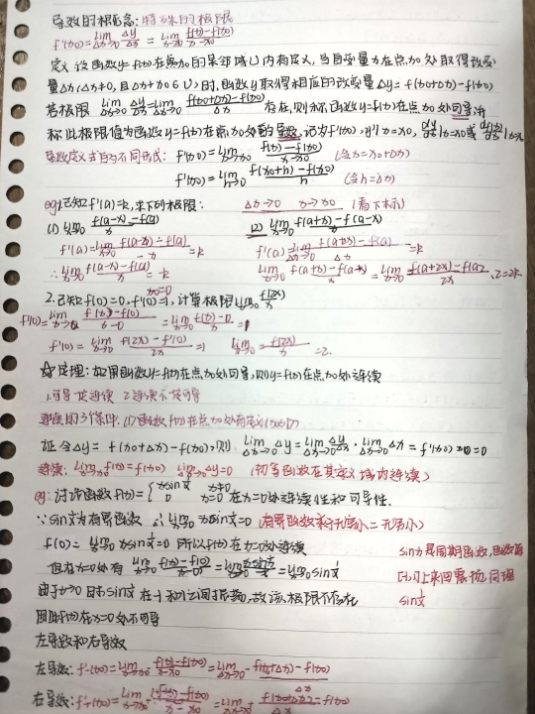 导数的概念: 特殊的极限
f'(x₀)=lim Δx→0 Δy/Δx = lim x→x₀ f(x)-f(x₀)/x-x₀
定义 设函数y=f(x)在点x₀的某邻域U内有定义,当自变量x在点x₀处取得改变
量Δx(Δx≠0,且Δx+x₀∈U)时,函数y取得相应的改变量Δy=f(x₀+Δx)-f(x₀)
若极限 lim Δx→0 Δy/Δx=lim Δx→0 f(x₀+Δx)-f(x₀)/Δx 存在,则称函数y=f(x)在点x₀处可导,并
称此极限值为函数y=f(x)在点x₀处的导数,记为f'(x₀), y'|x=x₀, dy/dx|x=x₀或
导数定义式的不同形式: f'(x₀)=lim x→x₀ f(x)-f(x₀)/x-x₀ (令x=x₀+Δx)
f'(x₀)=lim h→0 f(x₀+h)-f(x₀)/h (令h=Δx)
eg:已知f'(a)=k,求下列极限: Δx→0 x→x₀ (看下标)
(1) lim x→0 f(a-x)-f(a)/x (2) lim x→0 f(a+x)-f(a-x)/x
f'(a)=lim x→0 f(a-x)-f(a)/-x =k f'(a)=lim Δx→0 f(a+Δx)-f(a)/Δx =k
∴lim x→0 f(a-x)-f(a)/x =-k lim x→0 f(a+x)-f(a-x)/x =lim x→0 f(a+2x)-f(a)/2x ·2=2k
2.已知f(0)=0,f'(0)=1,计算极限lim x→0 f(2x)/x
f'(0)=lim x→0 f(x)-f(0)/x-0 =lim x→0 f(x)-0/x =1
f'(0)=lim x→0 f(2x)-f'(0)/2x =1 lim x→0 f(2x)/x =2.
☆定理:如果函数y=f(x)在点x₀处可导,则y=f(x)在点x₀处连续
1.可导一定连续 2.连续不一定可导
连续的3个条件: (1)函数f(x)在点x₀处有定义
证 令Δy=f(x₀+Δx)-f(x₀),则 lim Δx→0 Δy=lim Δx→0 Δy/Δx · lim Δx→0 Δx=f'(x₀)×0=0
连续: lim x→x₀ f(x)=f(x₀) lim Δx→0 Δy=0 (初等函数在其定义域内连续)
eg: 讨论函数f(x)={xsin1/x x≠0 0 x=0 在x=0处连续性和可导性.
∵sin1/x为有界函数 ∴lim x→0 xsin1/x=0 (有界函数乘无穷小=无穷小)
f(0)=lim x→0 xsin1/x=0 所以f(x)在x=0处连续
但在x=0处有 lim x→0 f(x)-f(0)/x-0 =lim x→0 xsin1/x/x =lim x→0 sin1/x
sinx是周期函数,函数在
[-1,1]上来回震荡,同理
sin1/x
由于x→0时,sin1/x在-1和1之间振荡,故该极限不存在
因此f(x)在x=0处不可导
左导数和右导数
左导数: f'₋(x₀)=lim x→x₀⁻ f(x)-f(x₀)/x-x₀ =lim Δx→0⁻ f(x₀+Δx)-f(x₀)/Δx
右导数: f'₊(x₀)=lim x→x₀⁺ f(x)-f(x₀)/x-x₀ =lim Δx→0⁺ f(x₀+Δx)-f(x₀)/Δx